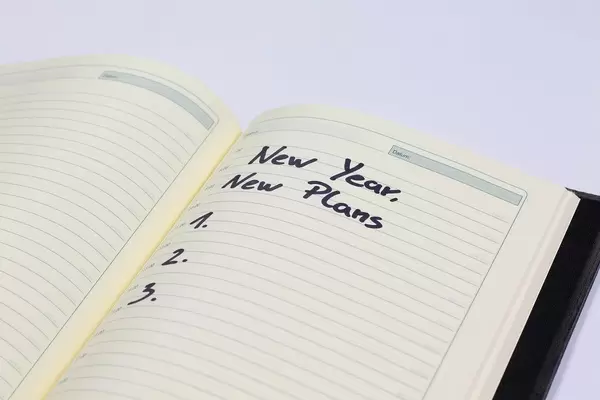 Datum:
New Year,
New Plans
1.
2.
3.